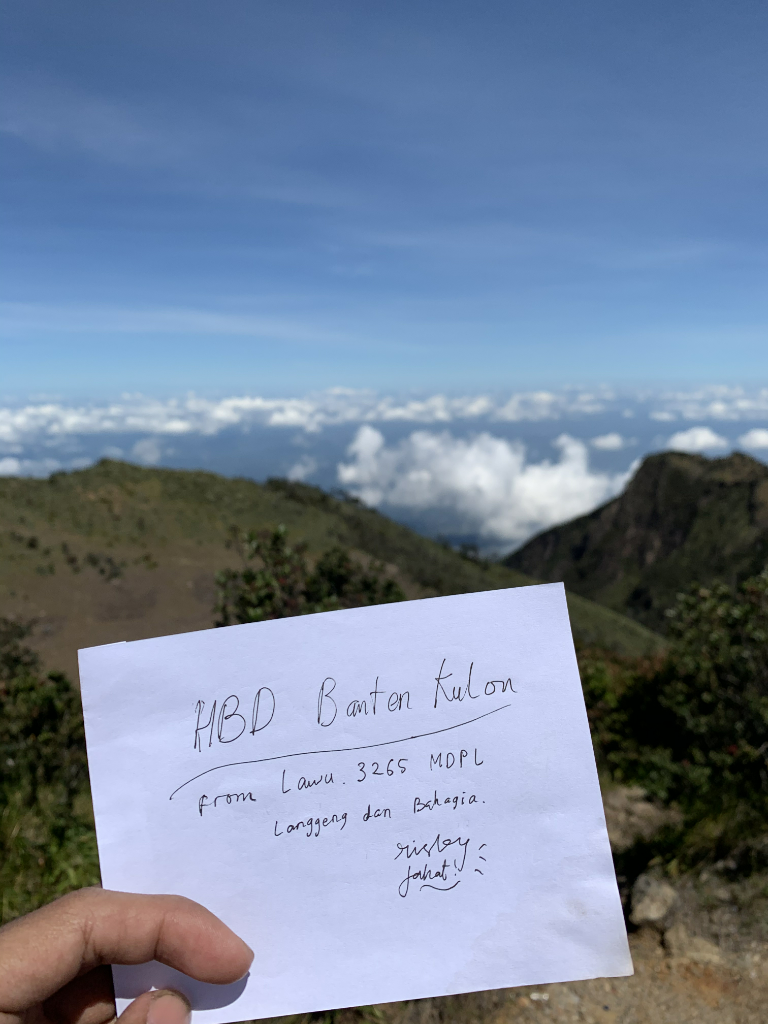 HBD Banten Kulon
From Lawu. 3265 MDPL
Langgeng dan Bahagia.
Jahat!